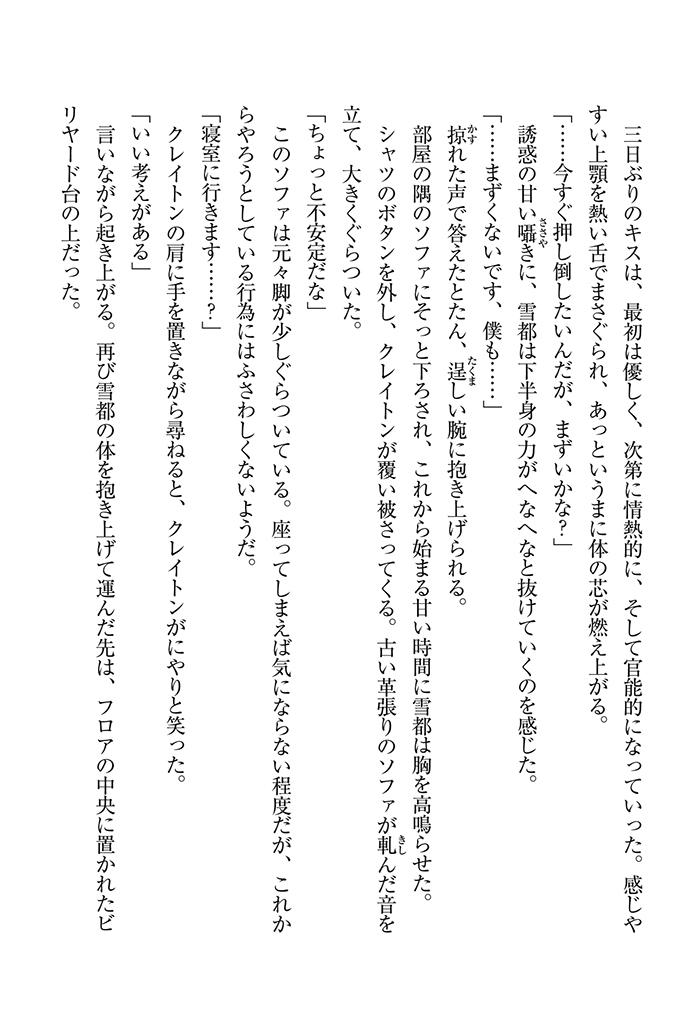 三日ぶりのキスは、最初は優しく、次第に情熱的に、そして官能的になっていった。感じや
すい上顎を熱い舌でまさぐられ、あっというまに体の芯が燃え上がる。
「……今すぐ押し倒したいんだが、まずいかな?」
誘惑の甘い囁きに、雪都は下半身の力がへなへなと抜けていくのを感じた。
「……まずくないです、僕も……」
掠れた声で答えたとたん、逞しい腕に抱き上げられる。
部屋の隅のソファにそっと下ろされ、これから始まる甘い時間に雪都は胸を高鳴らせた。
シャツのボタンを外し、クレイトンが覆い被さってくる。古い革張りのソファが軋んだ音を
立て、大きくぐらついた。
「ちょっと不安定だな」
このソファは元々脚が少しぐらついている。座ってしまえば気にならない程度だが、これか
らやろうとしている行為にはふさわしくないようだ。
「寝室に行きます……?」
クレイトンの肩に手を置きながら尋ねると、クレイトンがにやりと笑った。
「いい考えがある」
言いながら起き上がる。再び雪都の体を抱き上げて運んだ先は、フロアの中央に置かれたビ
リヤード台の上だった。